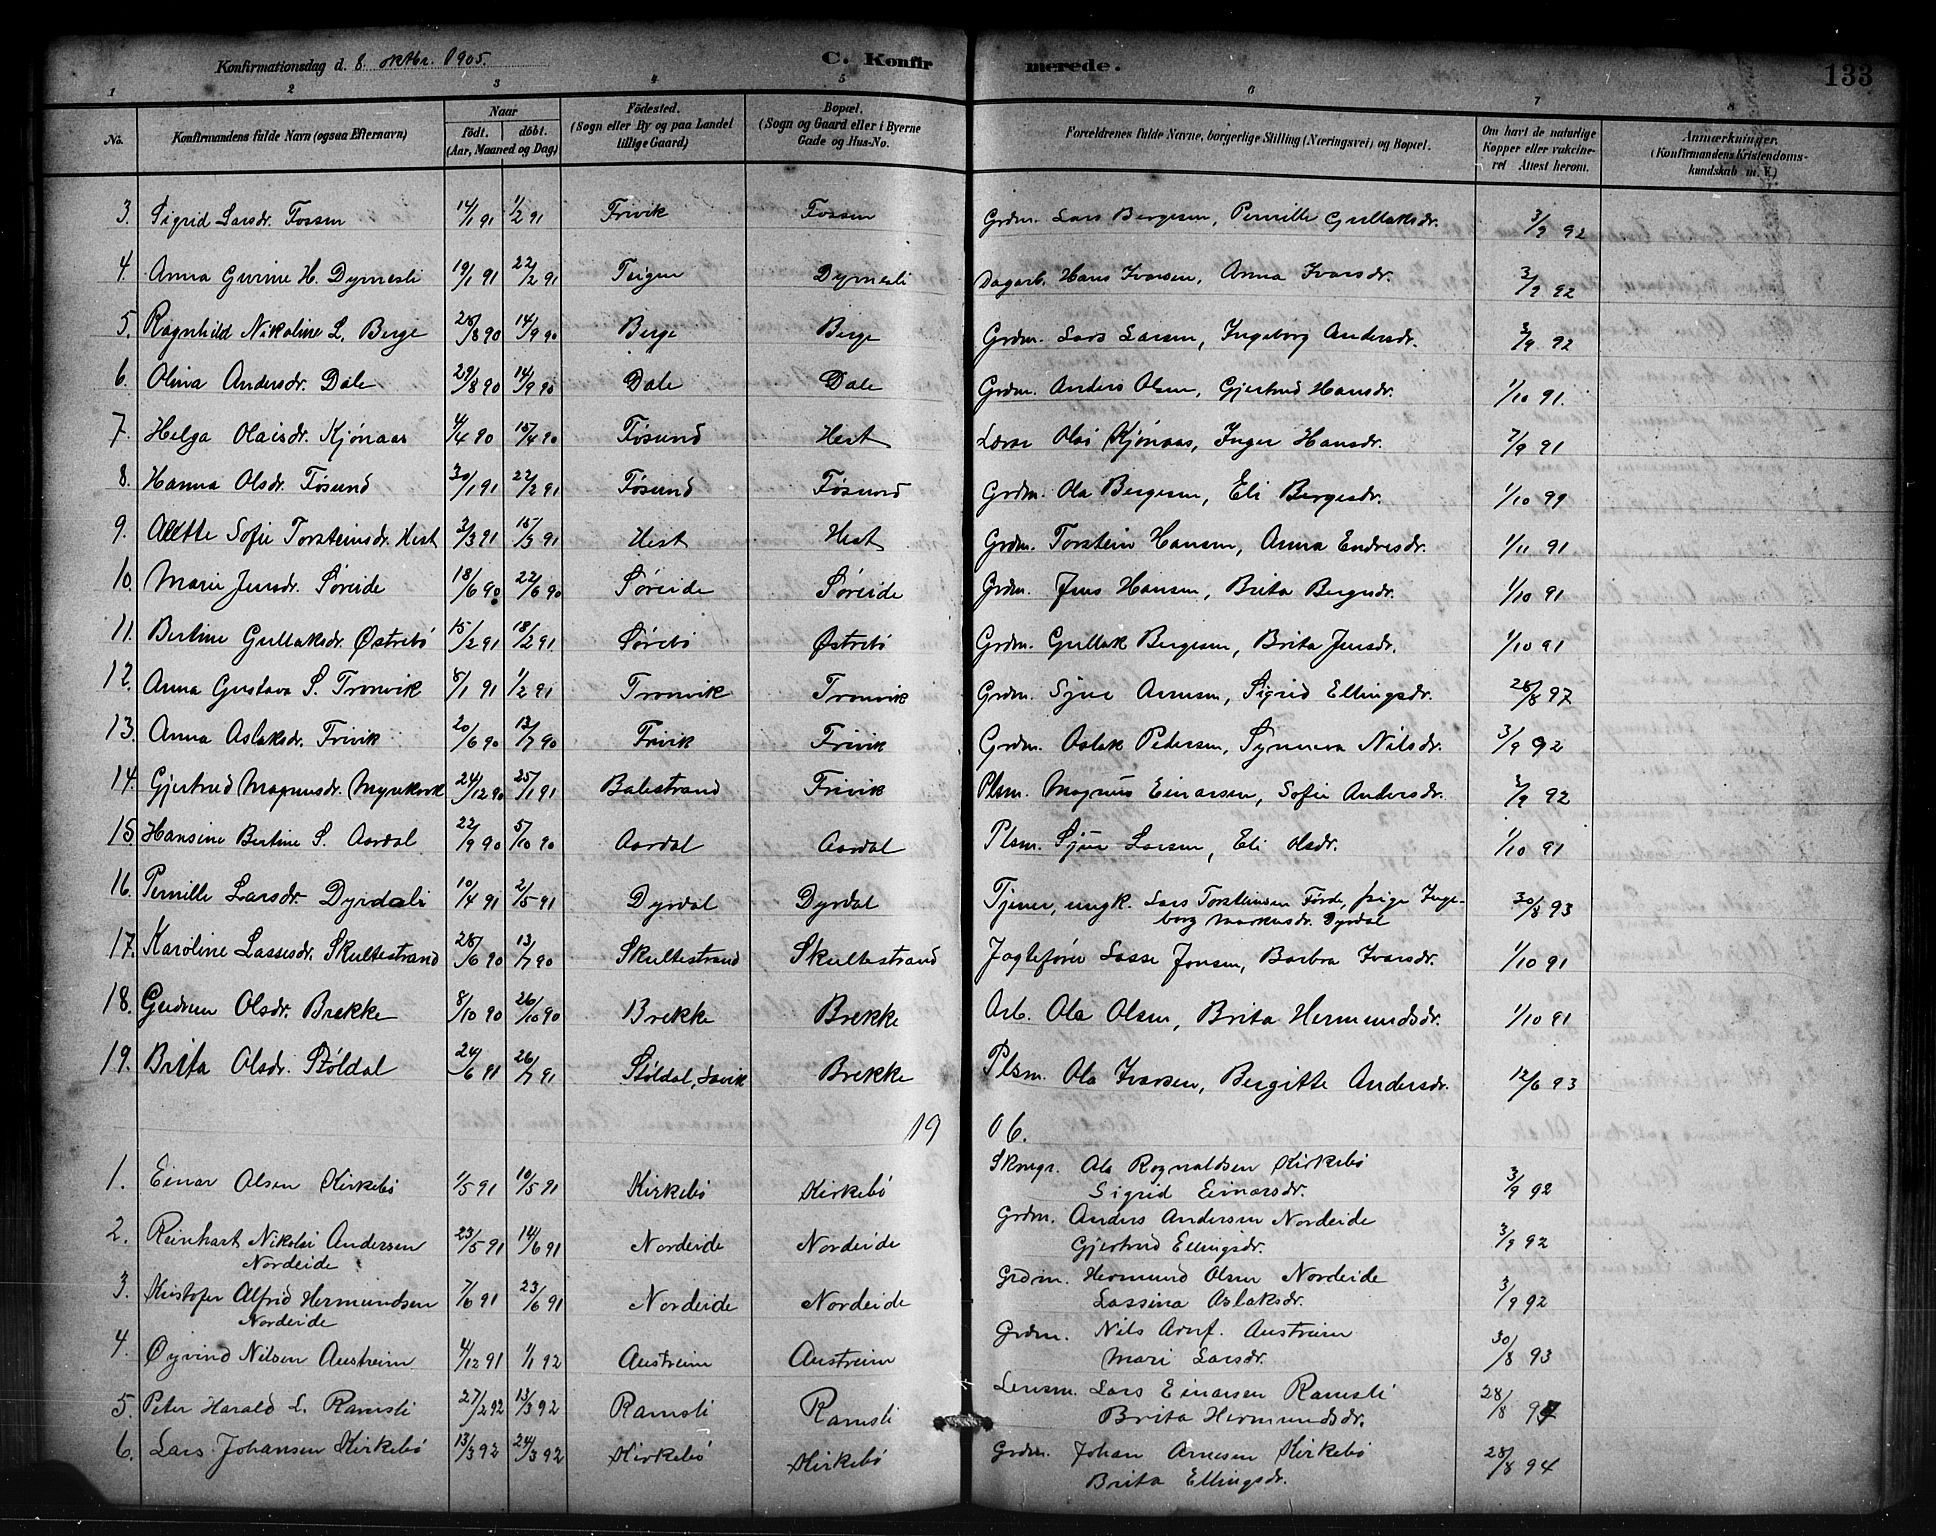 Konfirmationsdag d. 8 oktbr. 1905. C. Konfirmerede. 133
1 2 3 4 5 6 7 8
No. Konfirmandens fulde Navn (ogsaa Efternavn) Naar födt. döbt. (Aar, Maaned og Dag) Födested. (Sogn eller By og paa Landet tillige Gaard) Bopæl. (Sogn og Gaard eller i Byerne Gade og Hus-No. Forældrenes fulde Navne, borgerlige Stilling (Næringsvei) og Bopæl. Om havt de naturlige Kopper eller vakcineret Attest herom. Anmærkninger. (Konfirmandens Kristendomskundskab m. V.)
3. Sigrid Larsdr. Fossen 14/1 91 1/2 91 Frivik Fossen Grdm. Lars Bergesen, Pernille Gullaksdr. 3/9 92
4. Anna Gurine H. Dyrnesli 19/1 91 22/2 91 Teigen Dyrnesli Dagarb. Hans Ivarsen, Anna Ivarsdr. 3/9 92
5. Ragnhild Nikoline L. Berge 28/8 90 14/9 90 Berge Berge Grdm. Lars Larsen, Ingeborg Andersdr. 3/9 92
6. Olina Andersdr. Dale 29/8 90 14/9 90 Dale Dale Grdm. Anders Olsen, Gjertrud Hansdr. 1/10 91.
7. Helga Olaisdr. Kjönaas 4/4 90 15/4 90 Føsund Hest Lærer Olai Kjönaas, Inger Hansdr. 7/9 91
8. Hanna Olsdr. Føsund 30/1 91 22/2 91 Føsund Føsund Grdm. Ola Bergesen, Eli Bergesdr. 1/10 99
9. Alette Sofie Torsteinsdr. Hest 3/3 91 15/3 91 Hest Hest Grdm. Torstein Hansen, Anna Endresdr. 1/11 91
10. Marie Jensdr. Søreide 18/6 90 22/6 90 Søreide Søreide Grdm. Jens Hansen, Brita Bergesdr. 1/10 91
11. Bertine Gullaksdr. Østrebö 15/2 91 18/2 91 Sørebö Østrebö Grdm. Gullak Bergesen, Brita Jensdr. 1/10 91
12. Anna Gustava S. Tronvik 8/1 91 1/2 91 Tronvik Tronvik Grdm. Sjur Arnesen, Sigrid Ellingsdr. 28/8 97
13. Anna Aslaksdr. Frivik 20/6 90 13/7 90 Frivik Frivik Grdm. Aslak Pedersen, Synneva Nilsdr. 3/9 92
14. Gjertrud Magnusdr. 24/12 90 25/1 91 Balestrand Frivik Plsm. Magnus Einarsen, Sofie Andersdr. 3/9 92
15. Hansine Bertine S. Aardal 22/9 90 5/10 90 Aardal Aardal Plsm. Sjur Larsen, Eli Olsdr. 1/10 91
16. Pernille Larsdr. Dyrdali 10/4 91 2/5 91 Dyrdal Dyrdal Tjener, ungk. Lars Torsteinsen Förde, pige Inge-
borg Markusdr. Dyrdal 30/8 93
17. Karoline Lassesdr. Skultestrand 28/6 90 13/7 90 Skultestrand Skultestrand Lasse Jonsen, Barbra Ivarsdr. 1/10 91
18. Gudrun Olsdr. Brekke 8/10 90 26/10 90 Brekke Brekke Arb. Ola Olsen, Brita Hermundsdr. 1/10 91
19. Brita Olsdr. Støldal 24/6 91 26/7 91 Støldal, Lavik Brekke Plsm. Ola Ivarsen, Bergitte Andersdr. 12/6 93
1906.
1. Einar Olsen Kirkebö 1/5 91 10/5 91 Kirkebö Kirkebö Ola Rognaldsen Kirkebö
Sigrid Einarsdr. 3/9 92
2. Reinhart Nikolai Andersen 23/5 91 14/6 91 Nordeide Nordeide Grdm. Anders Andersen Nordeide
Nordeide Gjertrud Ellingsdr. 3/9 92
3. Kristofer Alfred Hermundsen 7/6 91 23/6 91 Nordeide Nordeide Grdm. Hermund Olsen Nordeide
Nordeide Lassina Aslaksdr. 3/9 92
4. Øyvind Nilsen Austreim 4/12 91 1/1 92 Austreim Austreim Grdm. Nils Arnf. Austreim
Mari Larsdr. 30/8 93
5. Peter Harald L. Ramsli 27/2 92 13/3 92 Ramsli Ramsli Lensm. Lars Einarsen Ramsli
Brita Hermundsdr. 28/8 97
6. Lars Johansen Kirkebö 13/3 92 24/3 92 Kirkebö Kirkebö Grdm. Johan Arnesen Kirkebö
Brita Ellingsdr. 28/8 94